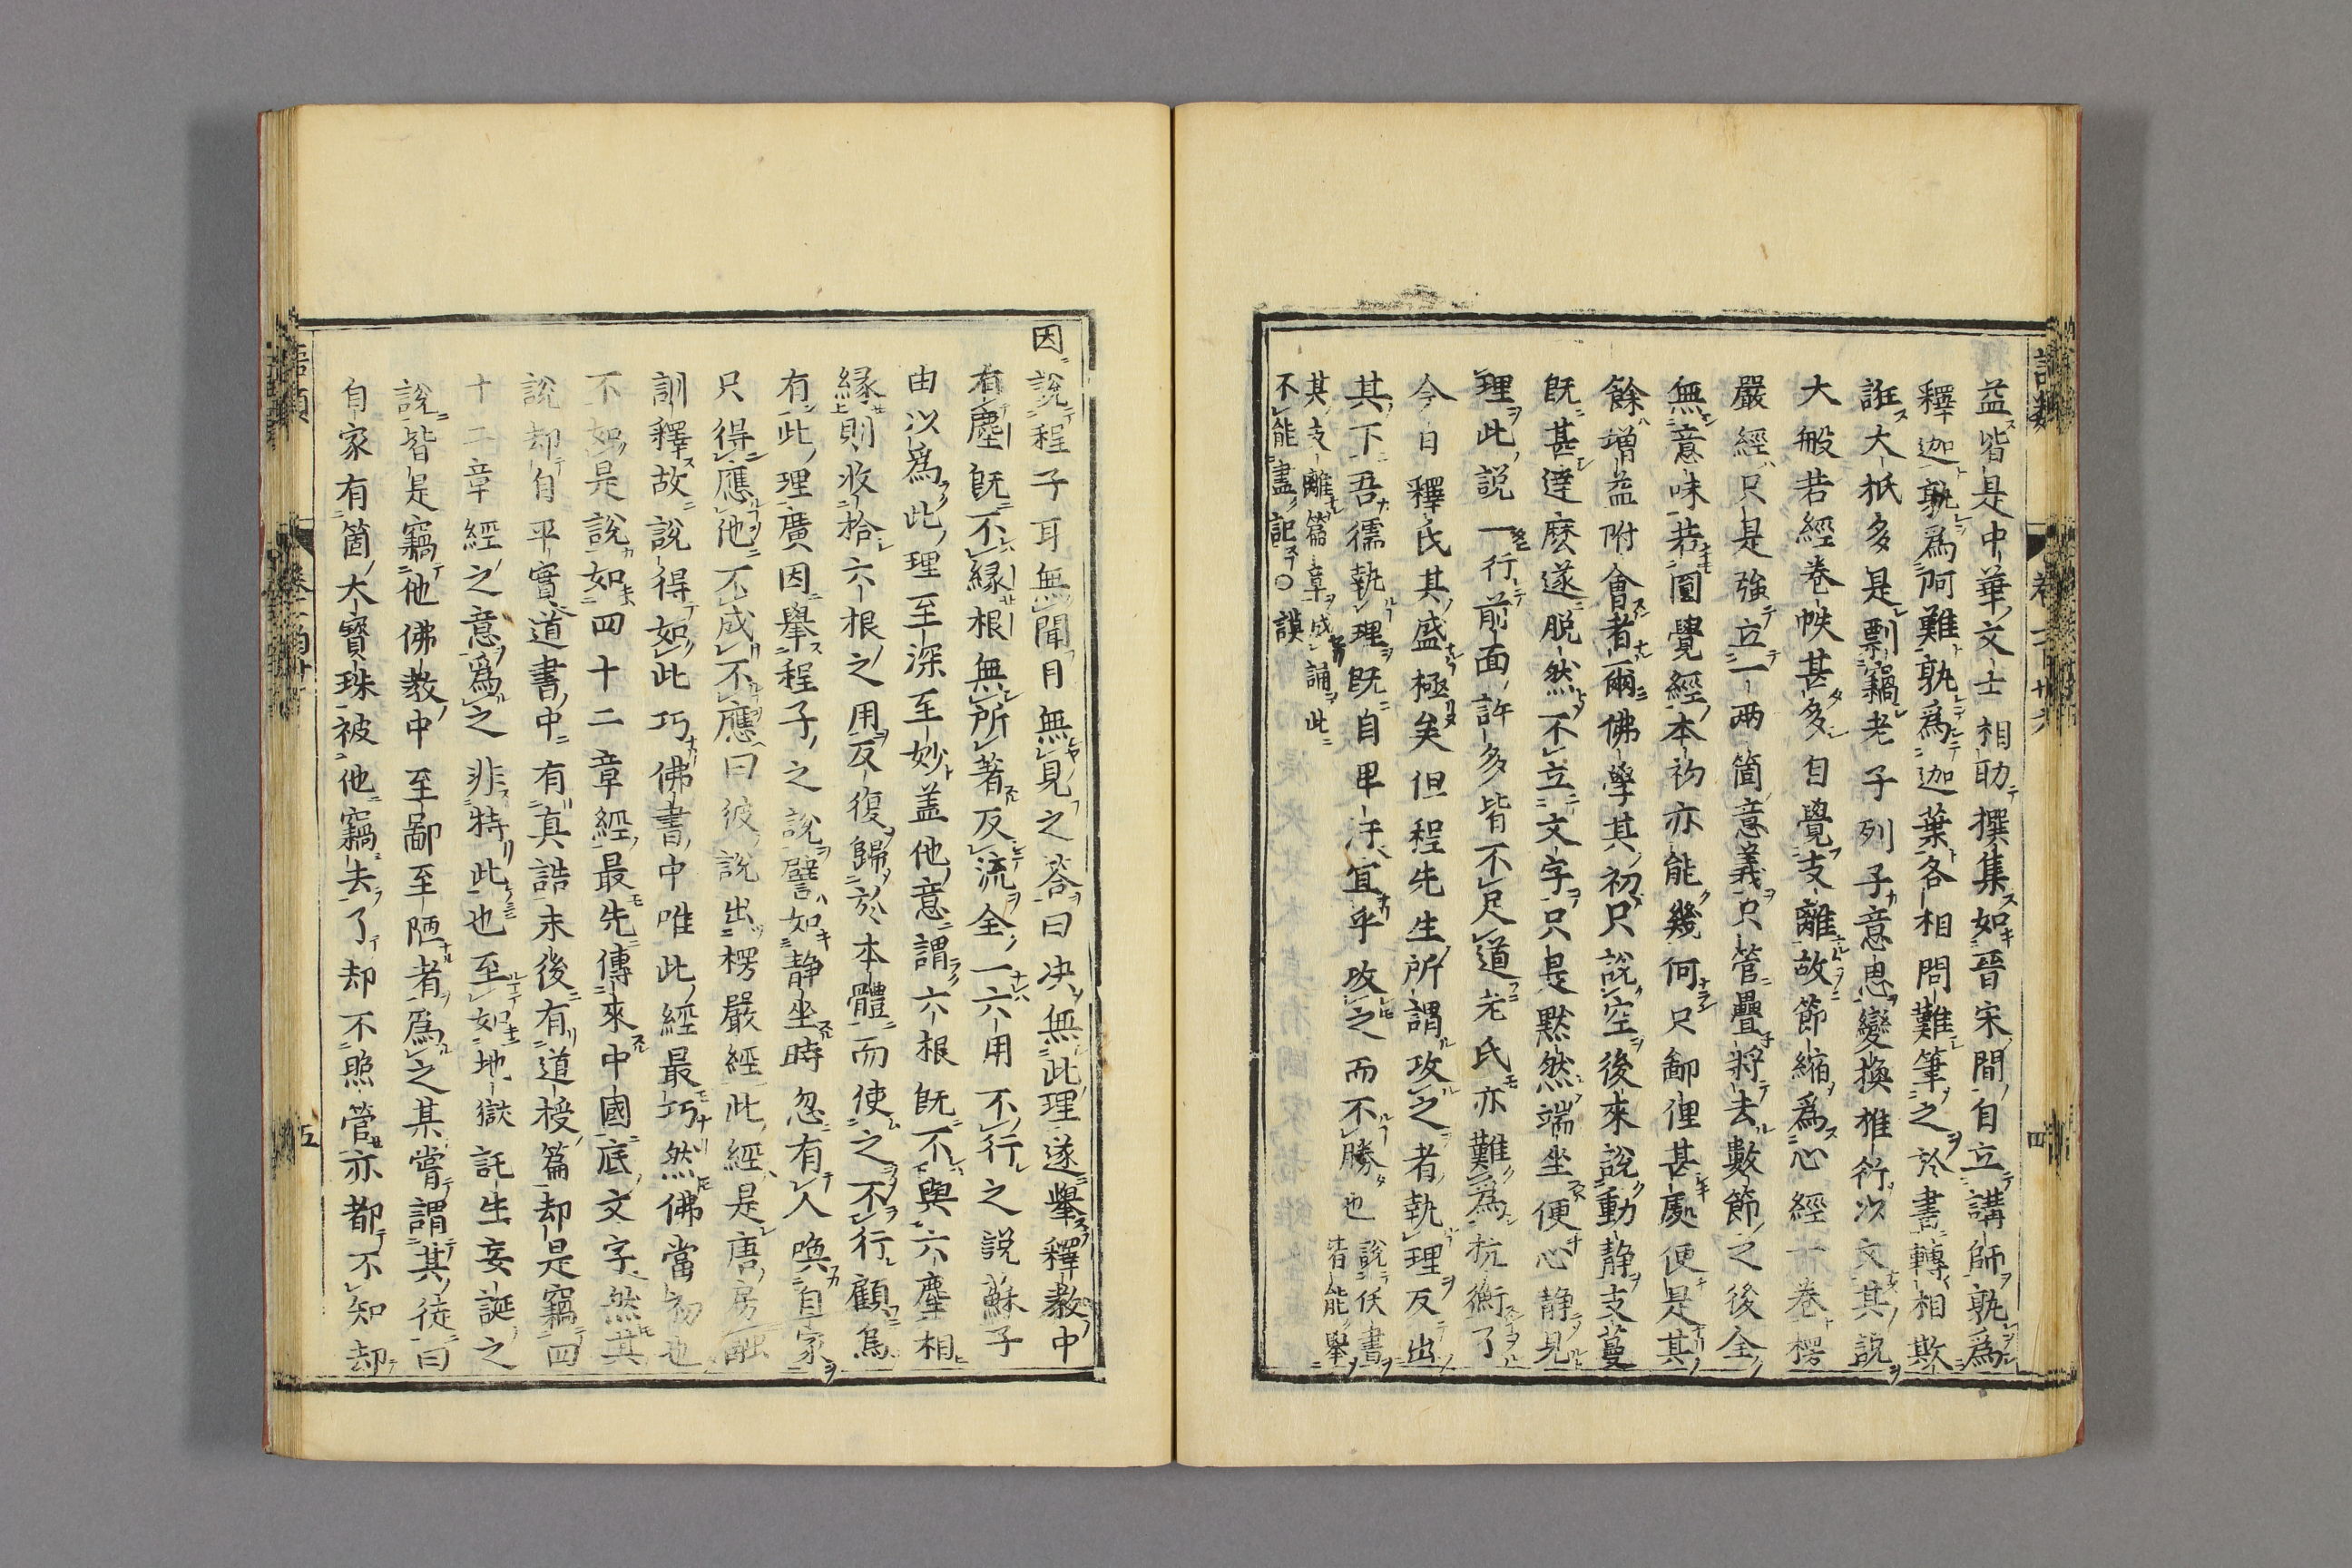 益皆是中華文士相助撰集如晉宋間自立講師孰為
釋迦孰為阿難孰為迦葉各相問難筆之於書轉相欺
誑大抵多是剽竊老子列子意思變換推衍以文其說
大般若經卷帙甚多自覺支離故節縮為心經一卷楞
嚴經只是強立一兩箇意義只管疊將去數節之後全
無意味若圓覺經本初亦能幾何只鄙俚甚處便是其
餘增益附會者爾佛學其初只說空後來說動靜支蔓
既甚達麽遂脫然不立文字只是默然端坐便心靜見
理此說一行前面許多皆不足道老氏亦難為抗衡了
今日釋氏其盛極矣但程先生所謂攻之者執理反出
其下吾儒執理既自卑汙宜乎攻之而不勝也
說佚書皆能舉
其支離篇章成誦此
不能盡記○謨
因說程子耳無聞目無見之答曰决無此理遂舉釋教中
有塵既不緣根無所著反流全一六用不行之說蘇子
由以為此理至深至妙蓋他意謂六根既不與六塵相
緣則收拾六根之用反復歸於本體而使之不行顧烏
有此理廣因舉程子之說譬如靜坐時忽有人喚自家
只得應他不成不應曰彼說出楞嚴經此經是唐房融
訓釋故說得如此巧佛書中唯此經最巧然佛當初也
不如是說如四十二章經最先傳來中國底文字然其
說却自平實道書中有真誥末後有道授篇却是竊四
十二章經之意為之非特此也至如地獄託生妄誕之
說皆是竊他佛教中至鄙至陋者為之某嘗謂其徒曰
自家有箇大寶珠被他竊去了却不照管亦都不知却